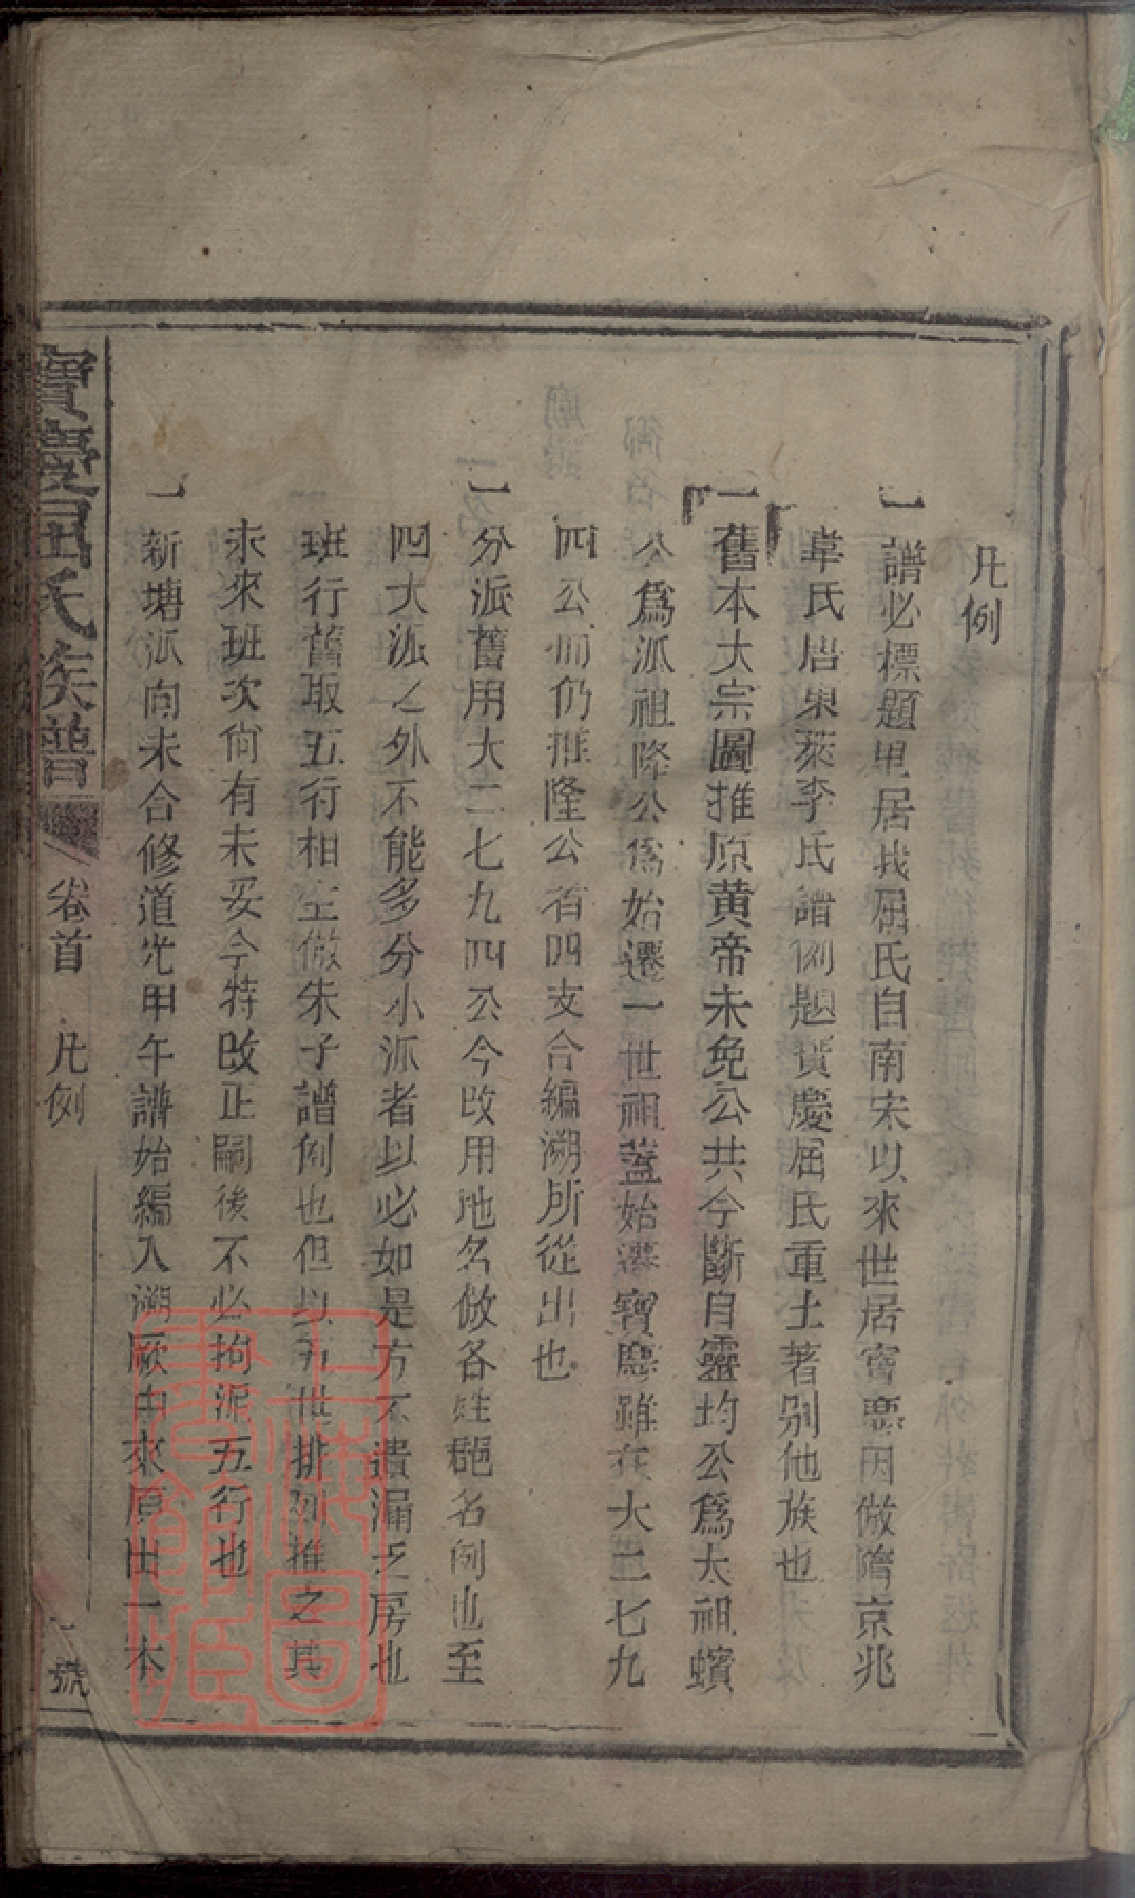 凡例
一譜必標題里居我屈氏自南宋以來世居寶慶因倣隋京兆
韋氏唐東萊李氏譜例題寶慶屈氏重土著別他族也
一舊本大宗圖推原黄帝未免公共今斷自靈均公爲太祖蠙
公爲派祖隆公爲始遷一世祖蓋始遷寶慶雖在大二七九
四公而仍推隆公者四支合編溯所從出也
一分派舊用大二七九四公今改用地名倣各姓郡名例也至
四大派之外不能多分小派者以必如是方不遺漏乏房也
班行舊取五行相生倣朱子譜例也但以五世排列推之其
未來班次尚有未妥今特改正嗣後不必拘泥五行也
一新塘派向未合修道光甲午譜始編入溯厥由來原出一本
寶慶屈氏族譜 卷首 凡例 一 號
上海圖書館藏